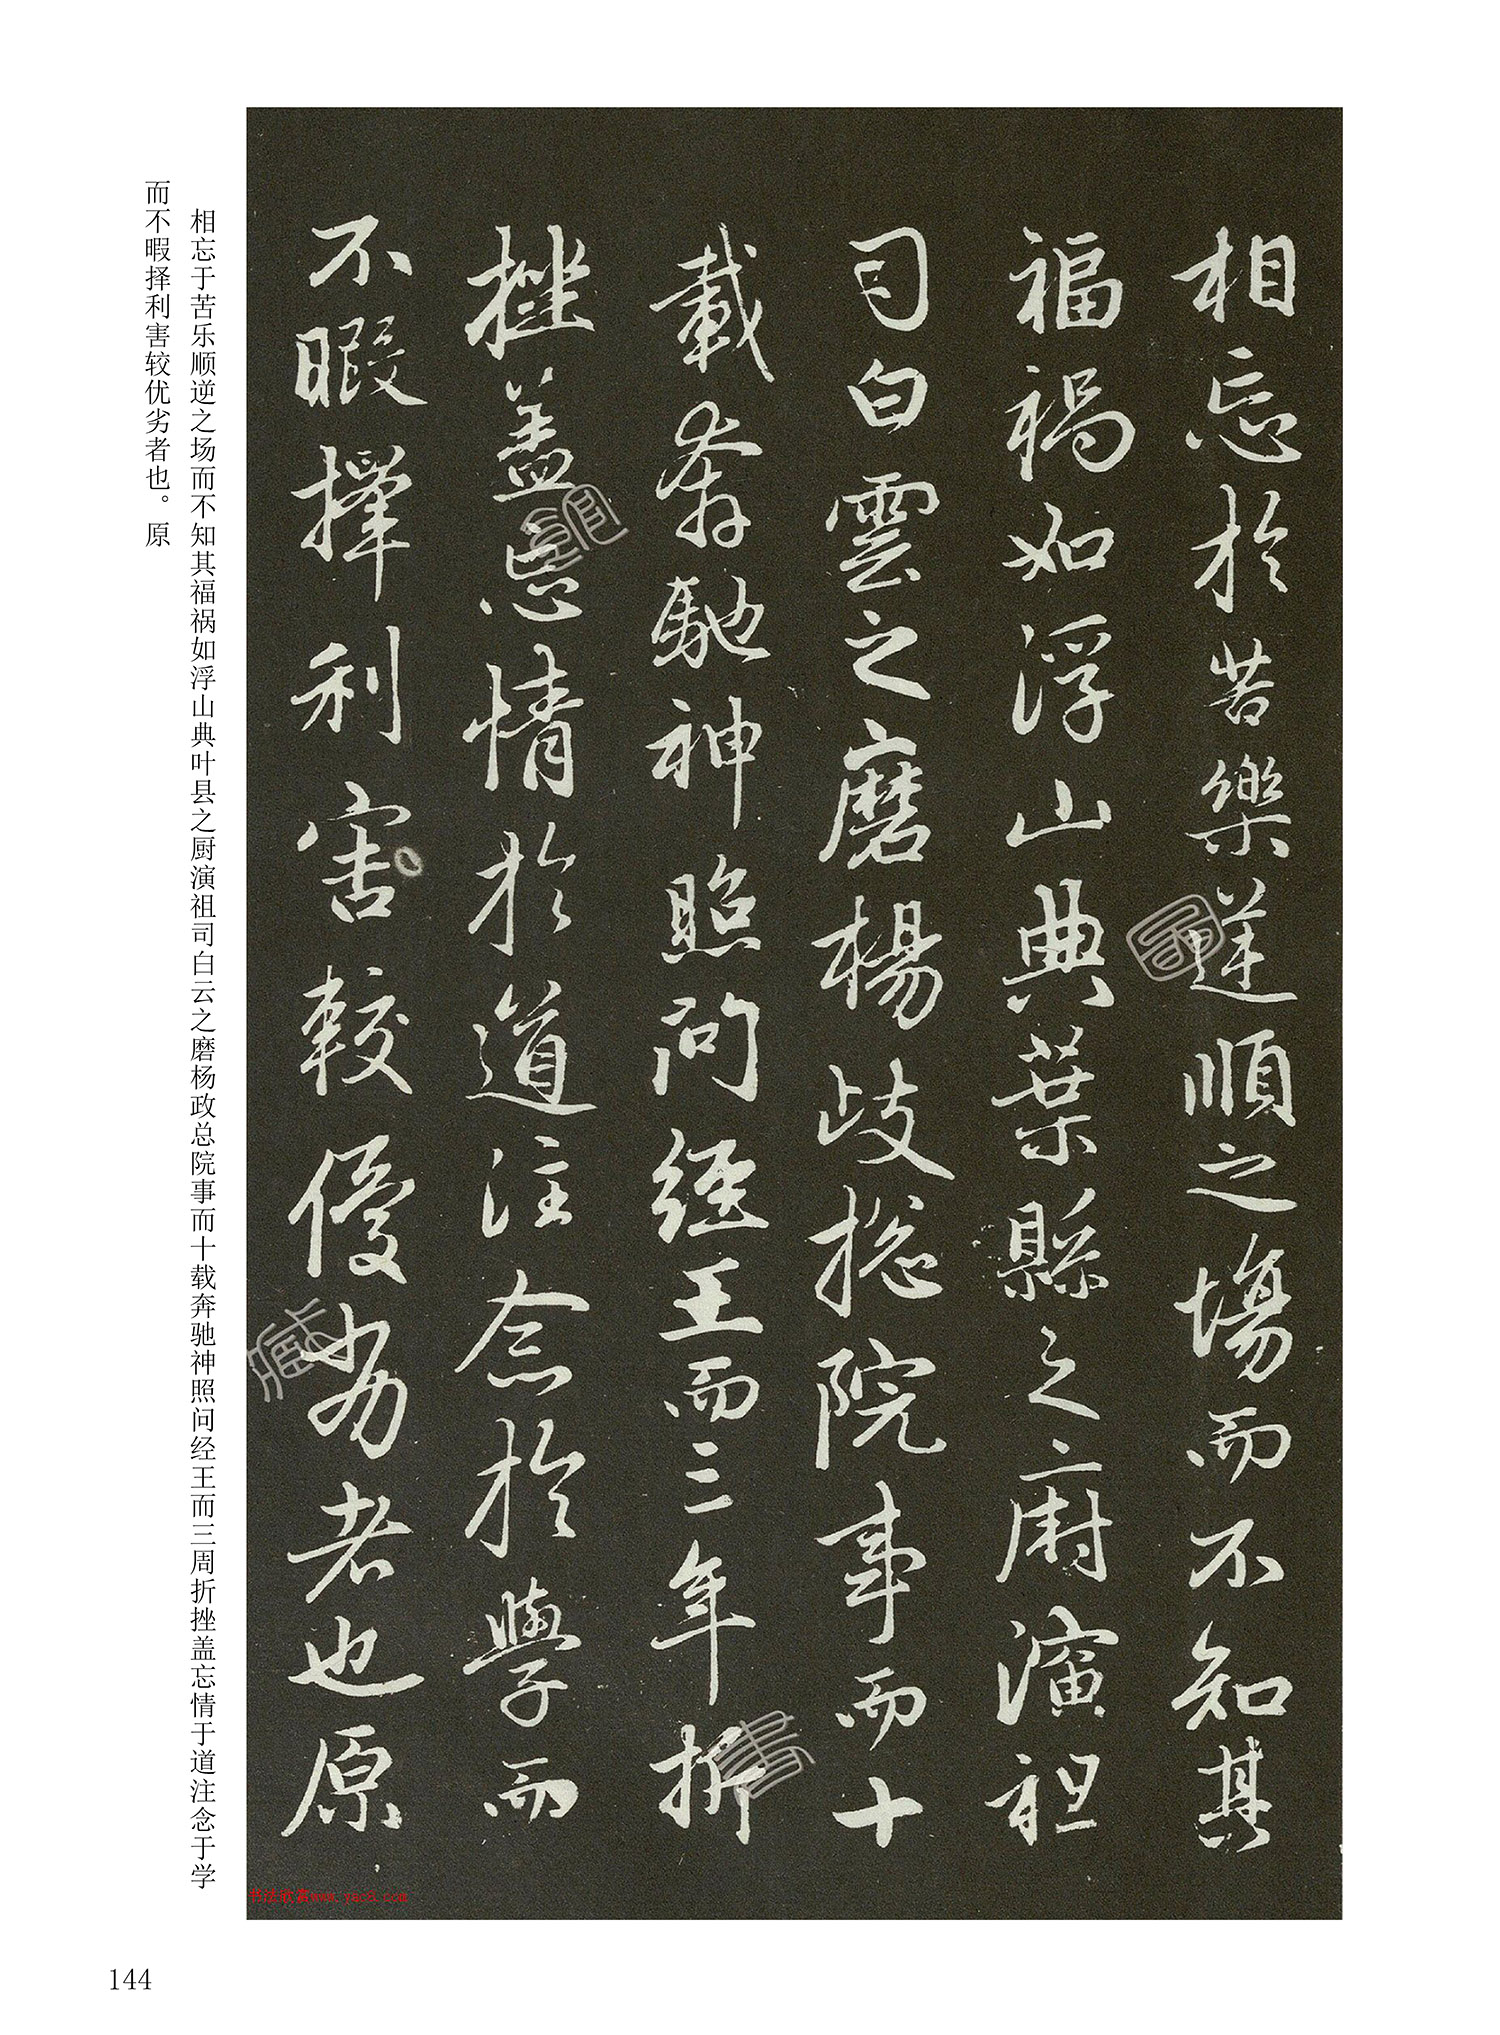 相忘於苦樂逆順之場而不知其
福禍如浮山典葉縣之厨演祖
司白雲之磨楊歧捴院事而十
載奔馳神照问經王而三年折
挫盖忘情於道注念於學而
不暇擇利害較優劣者也原
相忘于苦乐顺逆之场而不知其福祸如浮山典叶县之厨演祖司白云之磨杨政总院事而十载奔驰神照问经王而三周折挫盖忘情于道注念于学
而不暇择利害较优劣者也。原
书法欣赏www.yac8.com
144